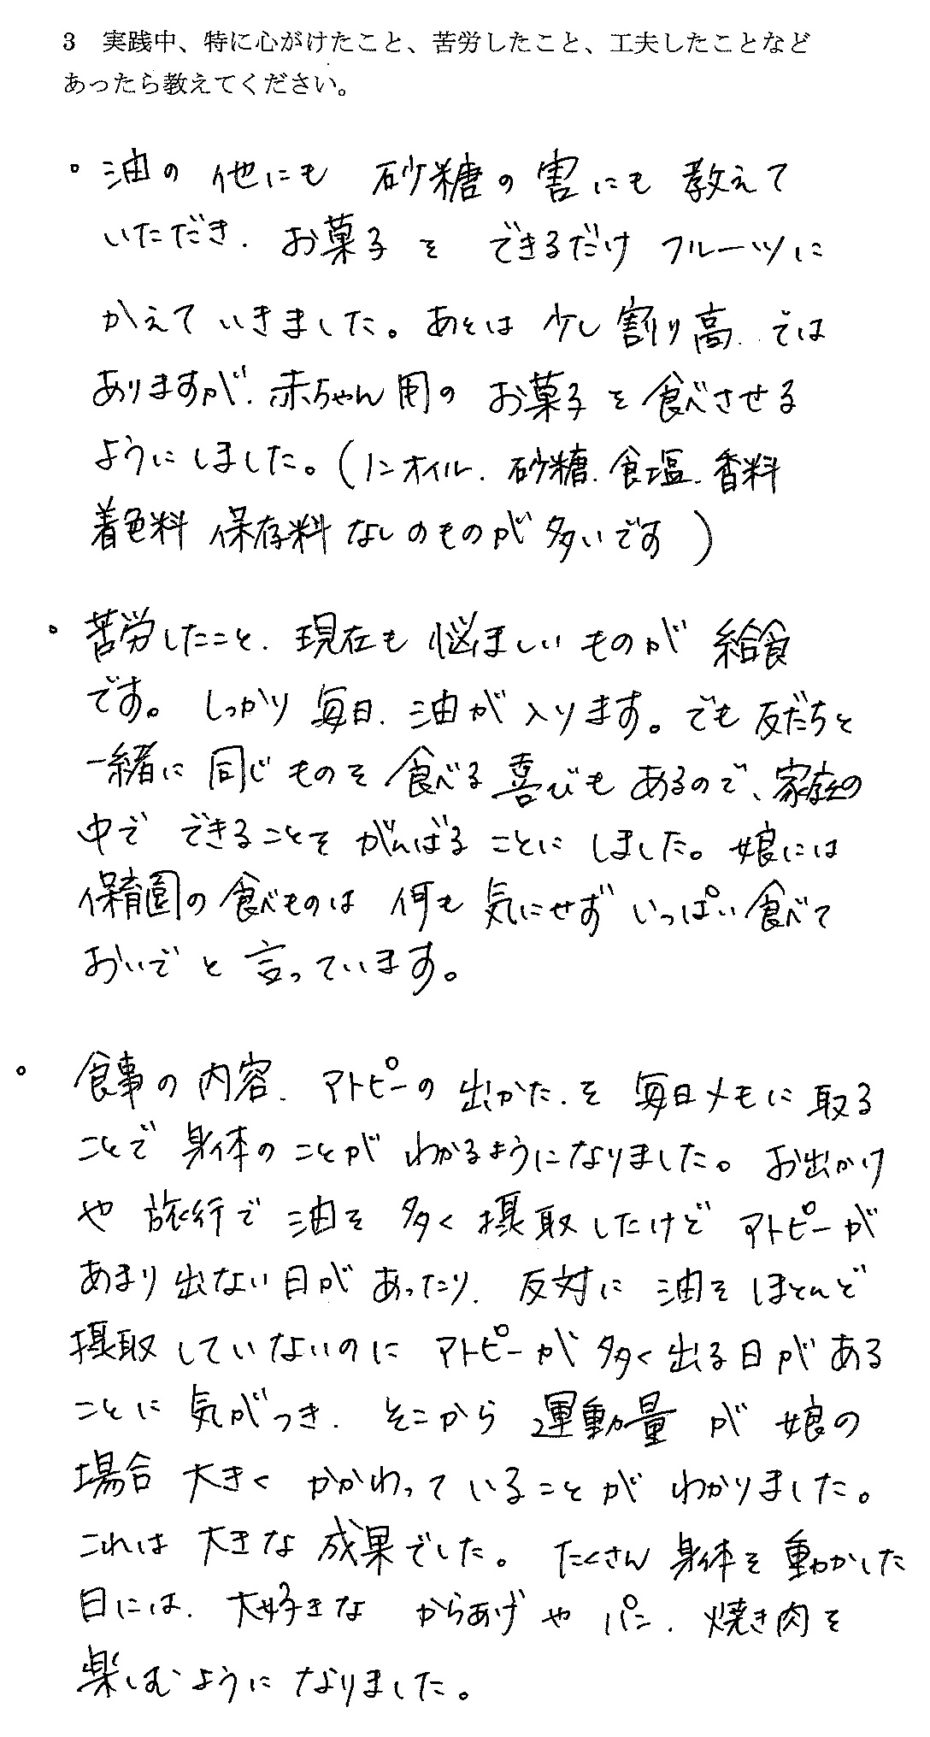 3 実践中、特に心がけたこと、苦労したこと、工夫したことなど
あったら教えてください。
。油の他にも 砂糖の害にも 教えて
いただき、お菓子を できるだけ フルーツに
かえていきました。あとは 少し割り高、では
ありますが、赤ちゃん用の お菓子を食べさせる
ようにしました。(ノンオイル、砂糖、食塩、香料
着色料 保存料 なしのものが多いです)
。苦労したこと、現在も悩ましいものが 給食
です。しっかり毎日、油が入ります。でも友だちと
一緒に 同じものを食べる喜びもあるので、家庭の
中で できることを がんばる ことに しました。娘には
保育園の食べものは 何も 気にせず いっぱい食べて
おいで と 言っています。
。食事の内容、アトピーの 出かた、を 毎日メモに取る
ことで身体のことが わかるようになりました。お出かけ
や 旅行で 油を 多く摂取したけど アトピーが
あまり出ない日が あったり、反対に 油を ほとんど
摂取していないのに アトピーが 多く出る日がある
ことに気がつき、そこから 運動量が 娘の
場合 大きく かかわっていることが わかりました。
これは 大きな 成果でした。たくさん 身体を動かした
日には、大好きな からあげや パン、焼き肉を
楽しむようになりました。